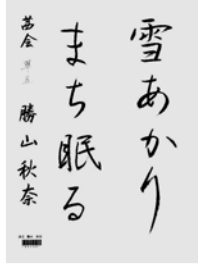 雪あかり
まち眠る
勝山秋奈